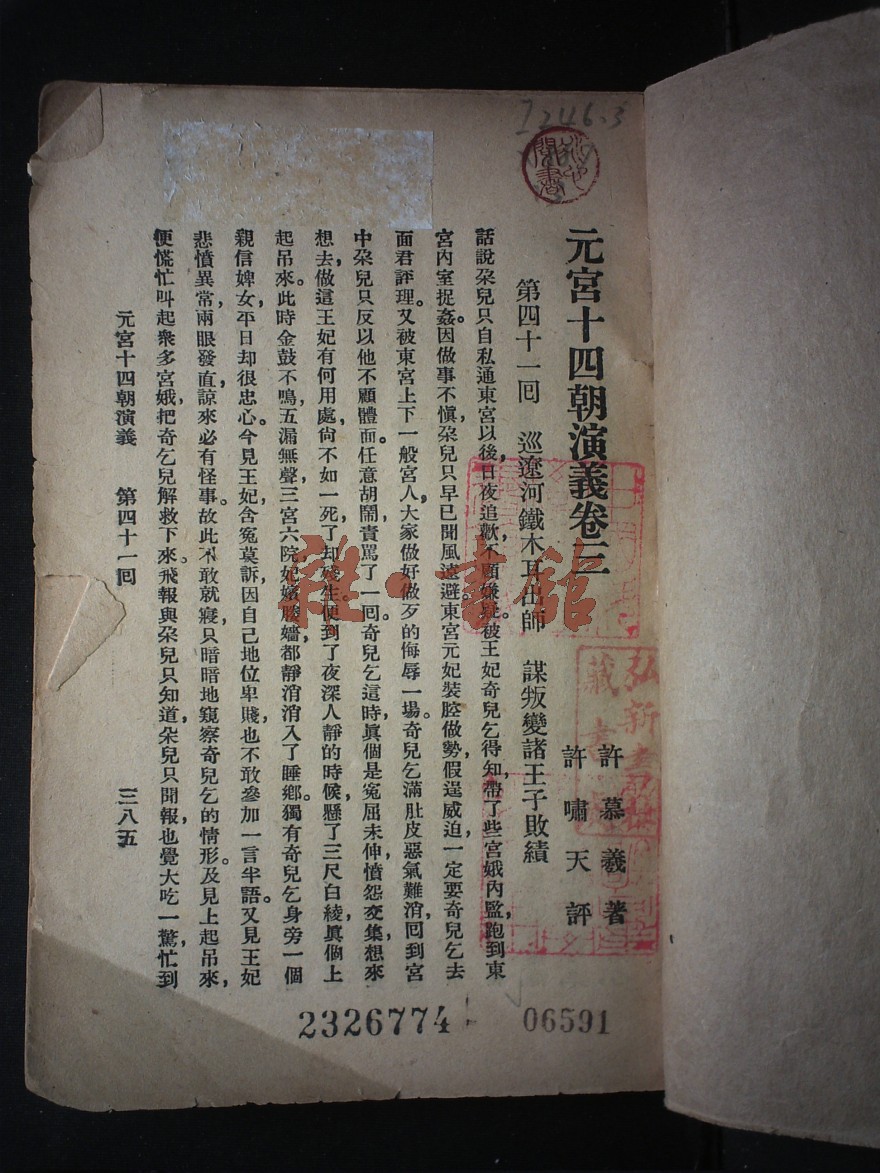 I246.3
元宮十四朝演義卷三
許慕羲著
許嘯天評
第四十一囘　巡遼河鐵木耳出師　謀叛變諸王子敗績
話說朶兒只自私通東宮以後,日夜追歡,不顧嫌疑,被王妃奇兒乞得知,帶了些宮娥內監,跑到東
宮內室捉姦。因做事不愼,朶兒只早已聞風遠避。東宮元妃裝腔做勢,假逞威迫,一定要奇兒乞去
面君評理。又被東宮上下一般宮人,大家做好做歹的侮辱一場。奇兒乞滿肚皮惡氣難消,囘到宮
中,朶兒只反以他不顧體面。任意胡鬧,責罵了一囘。奇兒乞這時,眞個是寃屈未伸,憤怨交集,想來
想去,做這王妃有何用處,尙不如一死了却殘生。便到了夜深人靜的時候,懸了三尺白綾,眞個上
起吊來。此時金鼓不鳴,五漏無聲,三宮六院,妃嬪媵嬙,都靜消消入了睡鄉。獨有奇兒乞身旁一個
親信婢女,平日却很忠心。今見王妃含寃莫訴,因自己地位卑賤,也不敢參加一言半語。又見王妃
悲憤異常,兩眼發直,諒來必有怪事。故此不敢就寢,只暗暗地窺察奇兒乞的情形。及見上起吊來,
便慌忙叫起衆多宮娥,把奇乞兒解救下來。飛報與朶兒只知道,朶兒只聞報,也覺大吃一驚,忙到
元宮十四朝演義　第四十一囘　三八五
弘新書
藏書
雜·書館
2326774
06591